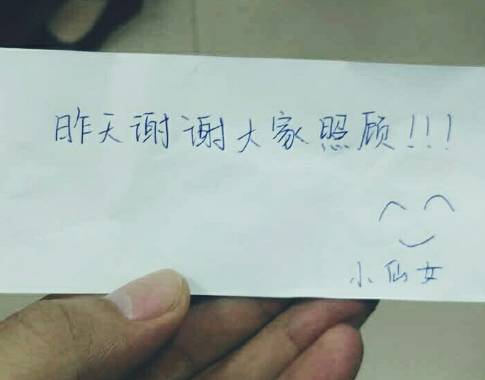 昨天谢谢大家照顾!!!
小仙女